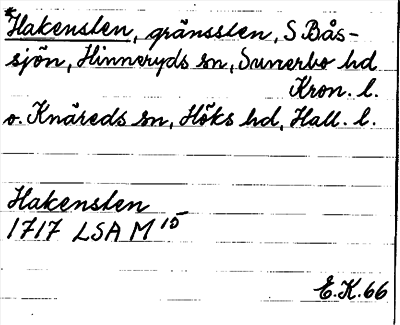 *Hakensten, gränssten, S Bås-
sjön, Hinneryds sn, Sunerbo hd
Kron. l.
o. Knäreds sn, Höks hd, Hall. l.
Hakensten
1717 LSA M 15
E.K. 66